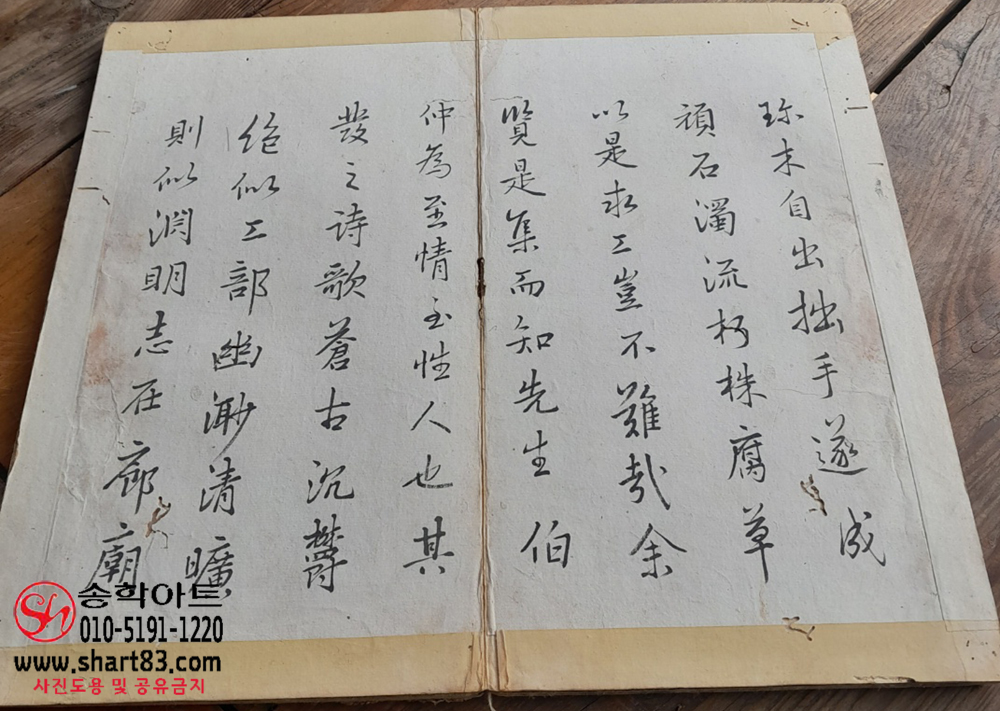 珎末自出拙手遂成
頑石濁流朽株腐草
以是求工豈不難哉余
覽是集而知先生伯
仲為至情至性人也其
發之詩歌蒼古沉欝
絶似工部幽渺清曠
則似淵明志在廊廟
송학아트
010-5191-1220
www.shart83.com
사진도용 및 공유금지